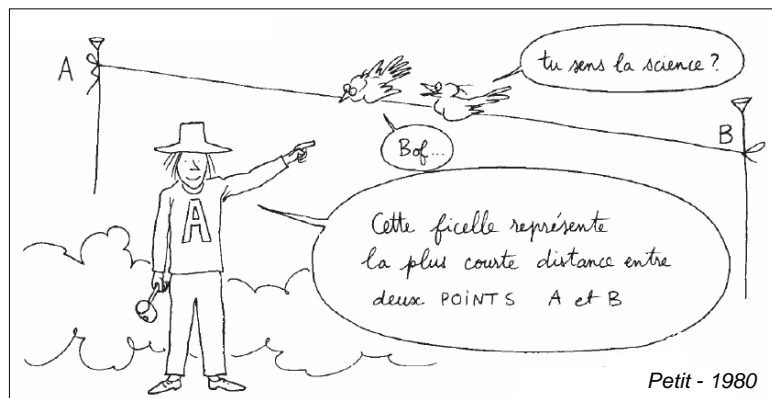 tu sens la science ?
A
B
Bof...
A
Cette ficelle représente
la plus courte distance entre
deux POINTS A et B
Petit - 1980